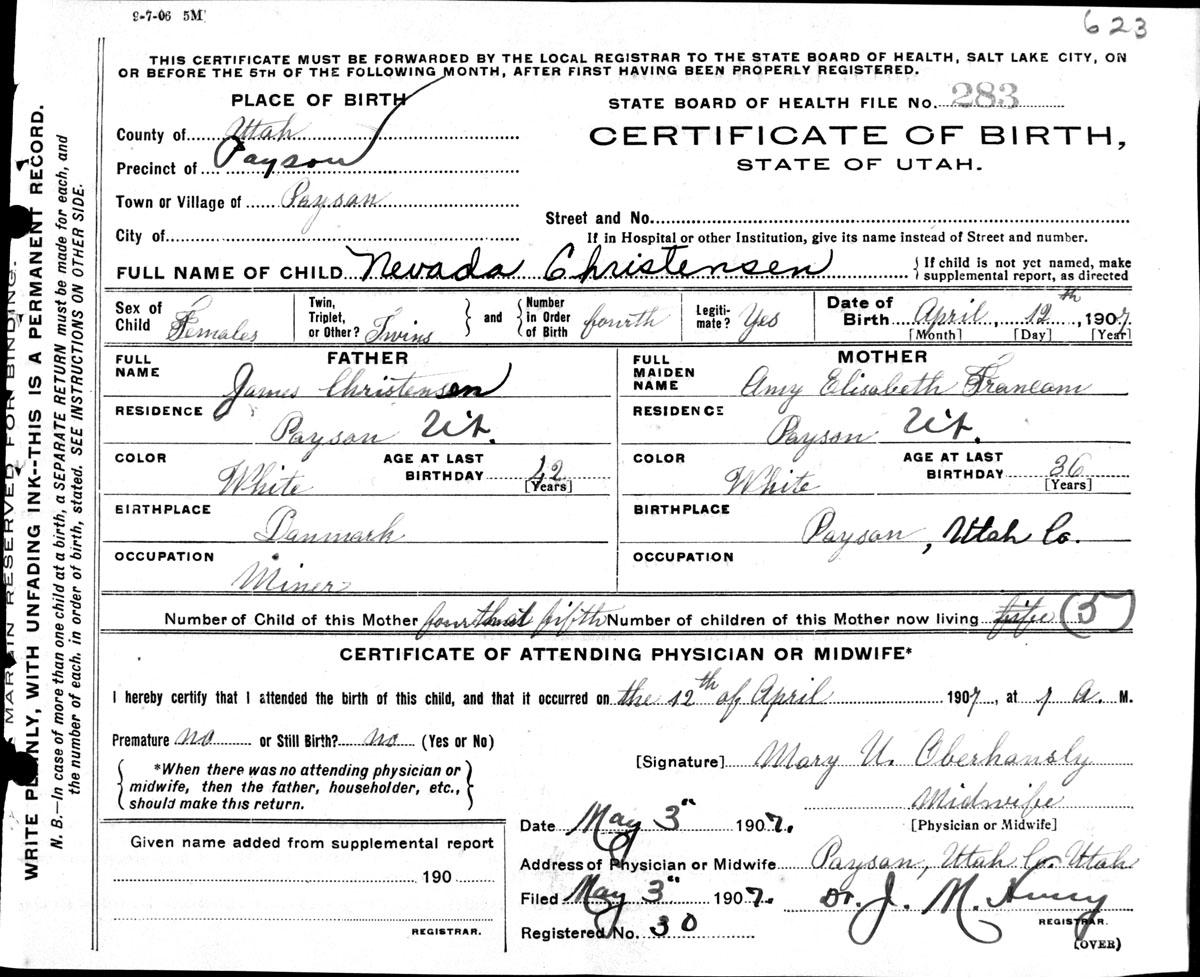 9-7-06 5M
623
THIS CERTIFICATE MUST BE FORWARDED BY THE LOCAL REGISTRAR TO THE STATE BOARD OF HEALTH, SALT LAKE CITY, ON
OR BEFORE THE 5TH OF THE FOLLOWING MONTH, AFTER FIRST HAVING BEEN PROPERLY REGISTERED.
PLACE OF BIRTH
STATE BOARD OF HEALTH FILE No. 283
County of Utah
CERTIFICATE OF BIRTH,
STATE OF UTAH.
Precinct of Payson
Town or Village of Payson
Street and No.
City of
If in Hospital or other Institution, give its name instead of Street and number.
FULL NAME OF CHILD Nevada Christensen
{ If child is not yet named, make
supplemental report, as directed
Sex of Child Females
Twin, Triplet, or Other? Twins
and
Number in Order of Birth fourth
Legiti-mate? Yes
Date of Birth April, 12th, 1907
[Month] [Day] [Year]
FATHER
FULL NAME James Christensen
RESIDENCE Payson Ut.
COLOR White
AGE AT LAST BIRTHDAY 42
[Years]
BIRTHPLACE Danmark
OCCUPATION Miner
MOTHER
FULL MAIDEN NAME Amy Elisabeth Francom
RESIDENCE Payson Ut.
COLOR White
AGE AT LAST BIRTHDAY 36
[Years]
BIRTHPLACE Payson, Utah Co.
OCCUPATION
Number of Child of this Mother fourth fifth Number of children of this Mother now living (5)
CERTIFICATE OF ATTENDING PHYSICIAN OR MIDWIFE*
I hereby certify that I attended the birth of this child, and that it occurred on the 12th of April 1907, at 1 a. M.
Premature no or Still Birth? no (Yes or No)
*When there was no attending physician or
midwife, then the father, householder, etc.,
should make this return.
[Signature] Mary U. Oberhansly
Midwife
[Physician or Midwife]
Date May 3" 1907.
Given name added from supplemental report
190
REGISTRAR.
Address of Physician or Midwife Payson, Utah Co. Utah
Filed May 3" 1907.
Dr. J. M.
REGISTRAR.
Registered No. 30
(OVER)
MARGIN RESERVED FOR BINDING.
WRITE PLAINLY, WITH UNFADING INK--THIS IS A PERMANENT RECORD.
N. B.—In case of more than one child at a birth, a SEPARATE RETURN must be made for each, and
the number of each, in order of birth, stated. SEE INSTRUCTIONS ON OTHER SIDE.